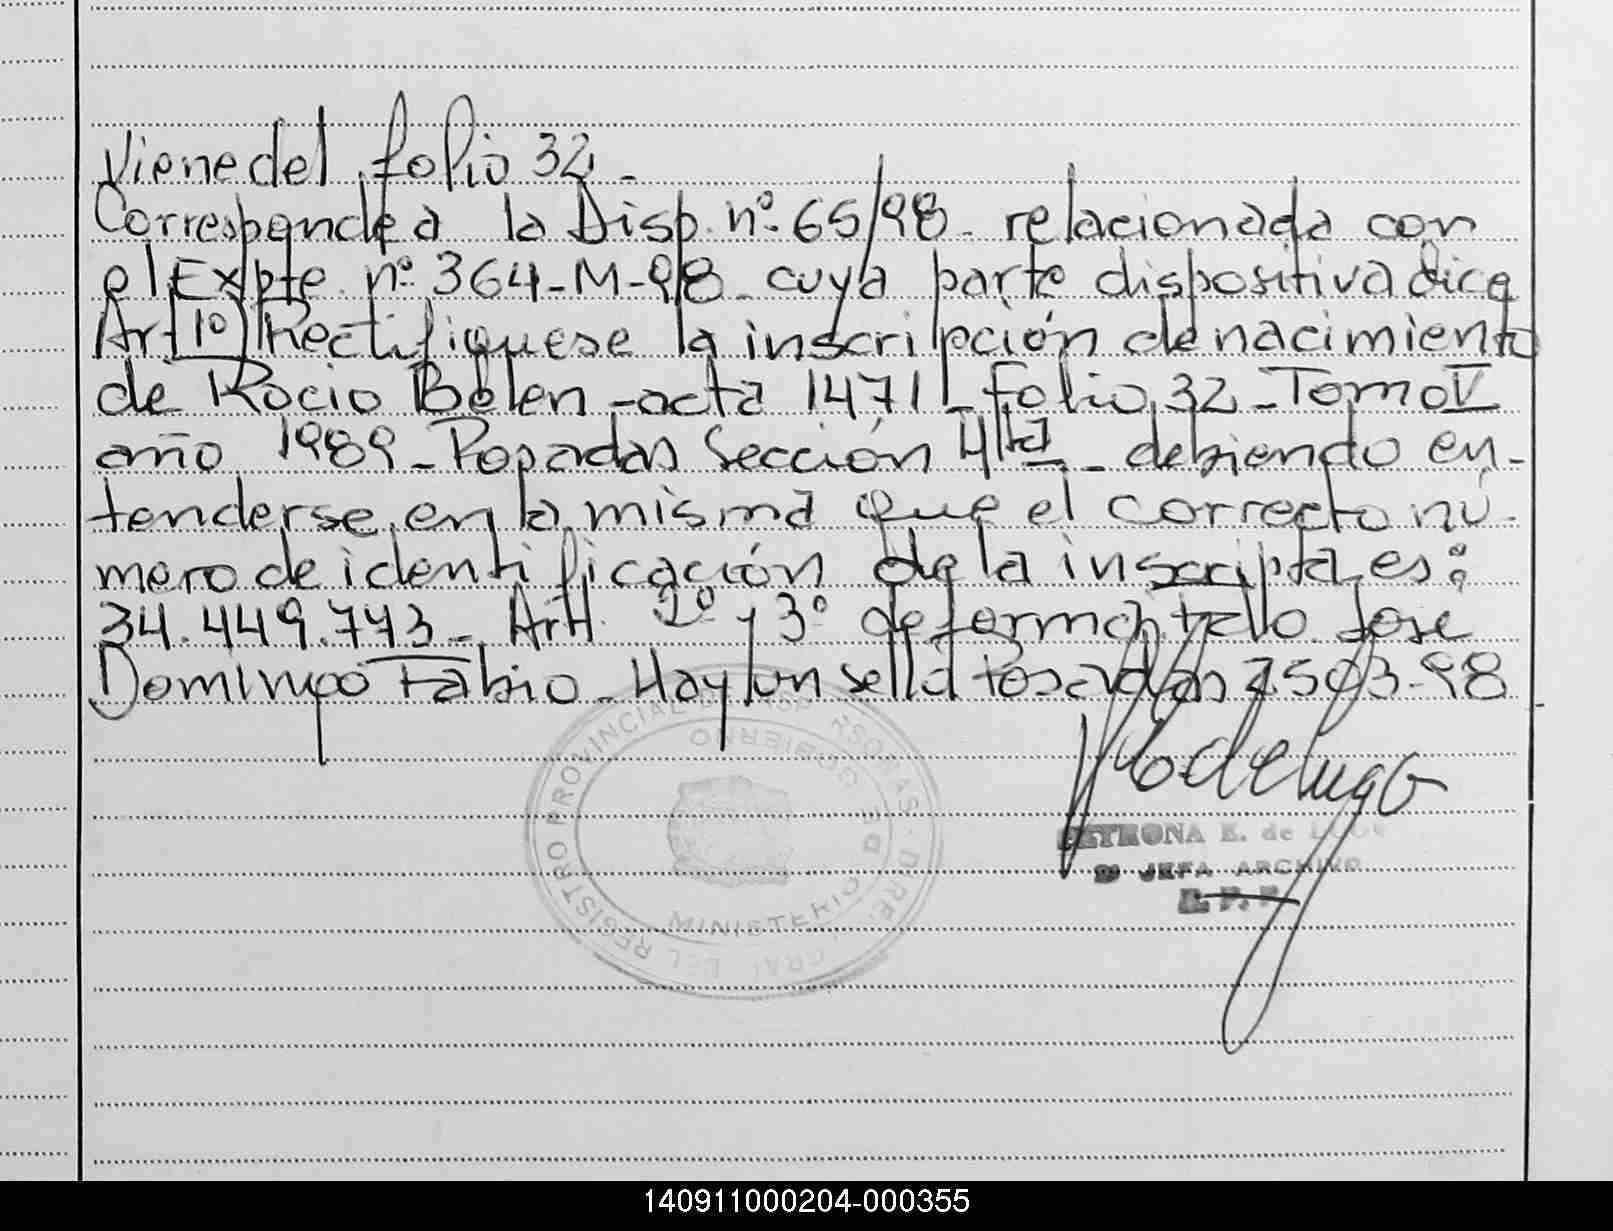 Viene del folio 32.-
Corresponde a la Disp. nº. 65/98 - relacionada con
el Expte. nº. 364-M-98 - cuya parte dispositiva dice
Art 1º) Rectifiquese la inscripción de nacimiento
de Rocio Belen - acta 1471 - folio 32 - Tomo V
año 1989 - Posadas Sección 4ta - debiendo en-
tenderse en la misma que el correcto nú-
mero de identificación de la inscripta es:
34.449.743 - Art. 2º y 3º de forma Jose
Domingo Fabio - Hay un sello Posadas 25 03-98
REGISTRO PROVINCIAL DE LAS PERSONAS - DIREC. GRAL DEL
MINISTERIO DE GOBIERNO
PETRONA E. de LUGO
JEFA ARCHIVO
140911000204-000355